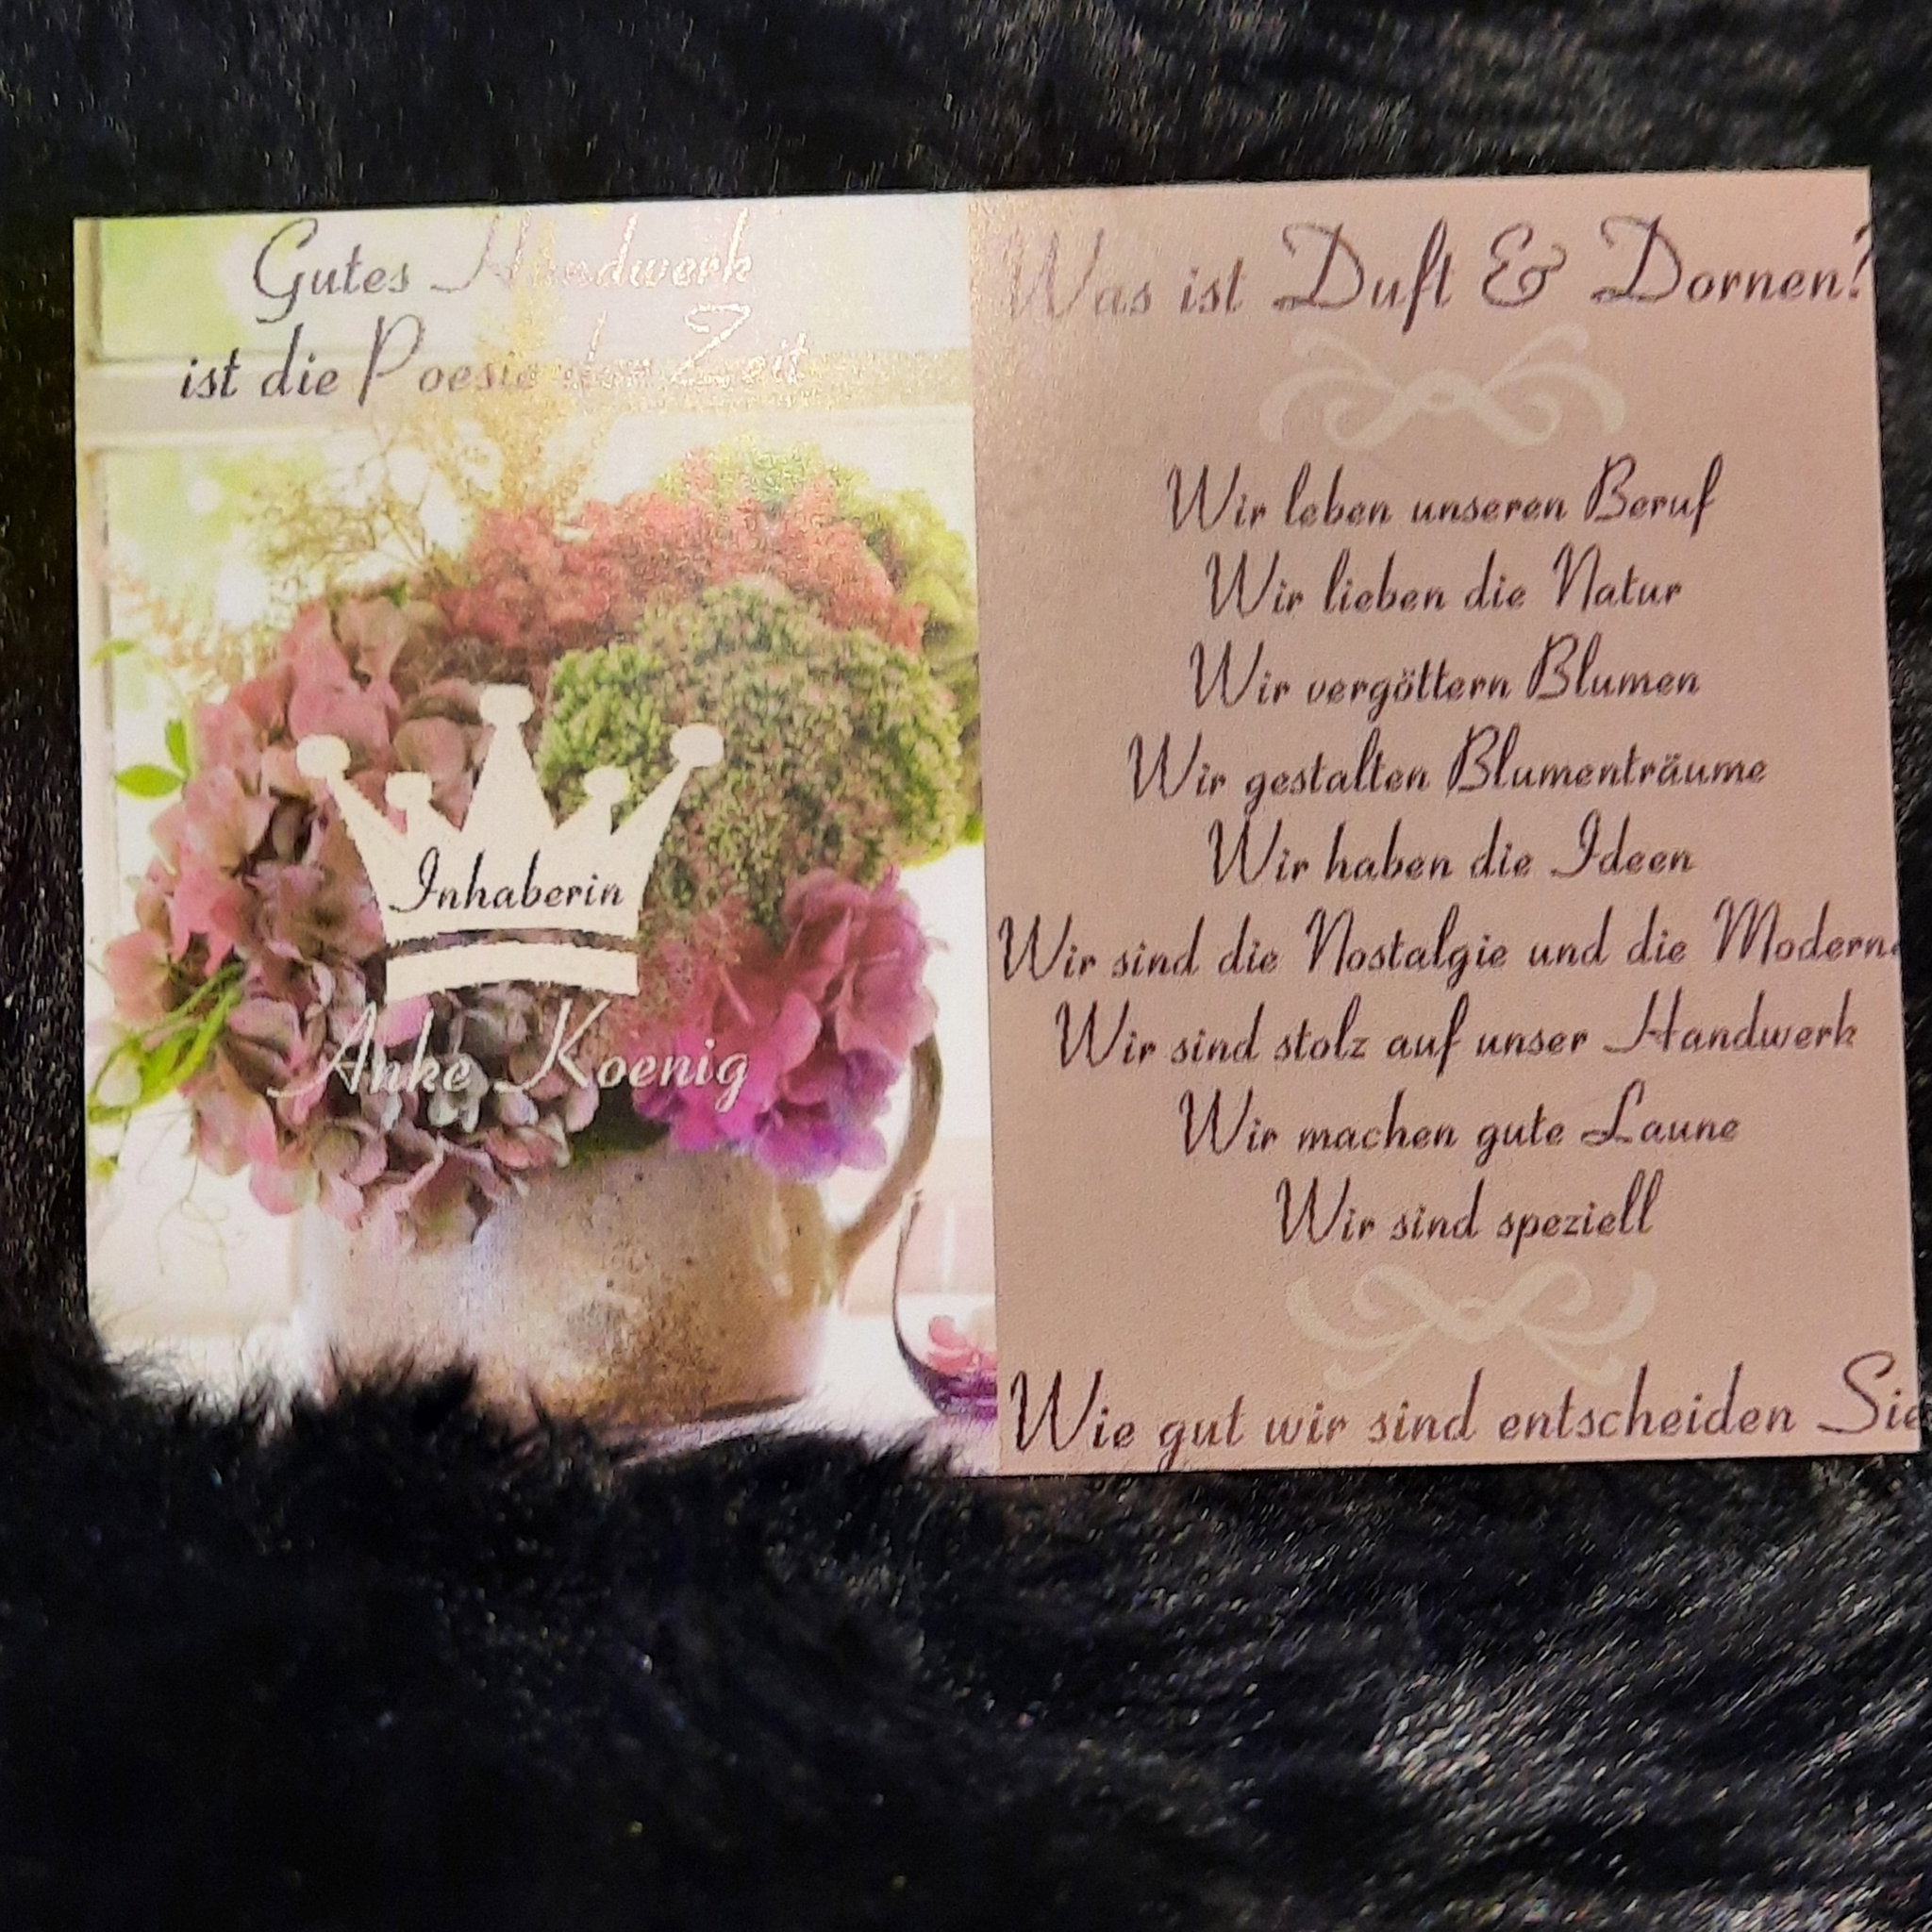 Gutes Handwerk
ist die Poesie der Zeit
Inhaberin
Anke Koenig
Was ist Duft & Dornen?
Wir leben unseren Beruf
Wir lieben die Natur
Wir vergöttern Blumen
Wir gestalten Blumenträume
Wir haben die Ideen
Wir sind die Nostalgie und die Moderne
Wir sind stolz auf unser Handwerk
Wir machen gute Laune
Wir sind speziell
Wie gut wir sind entscheiden Sie